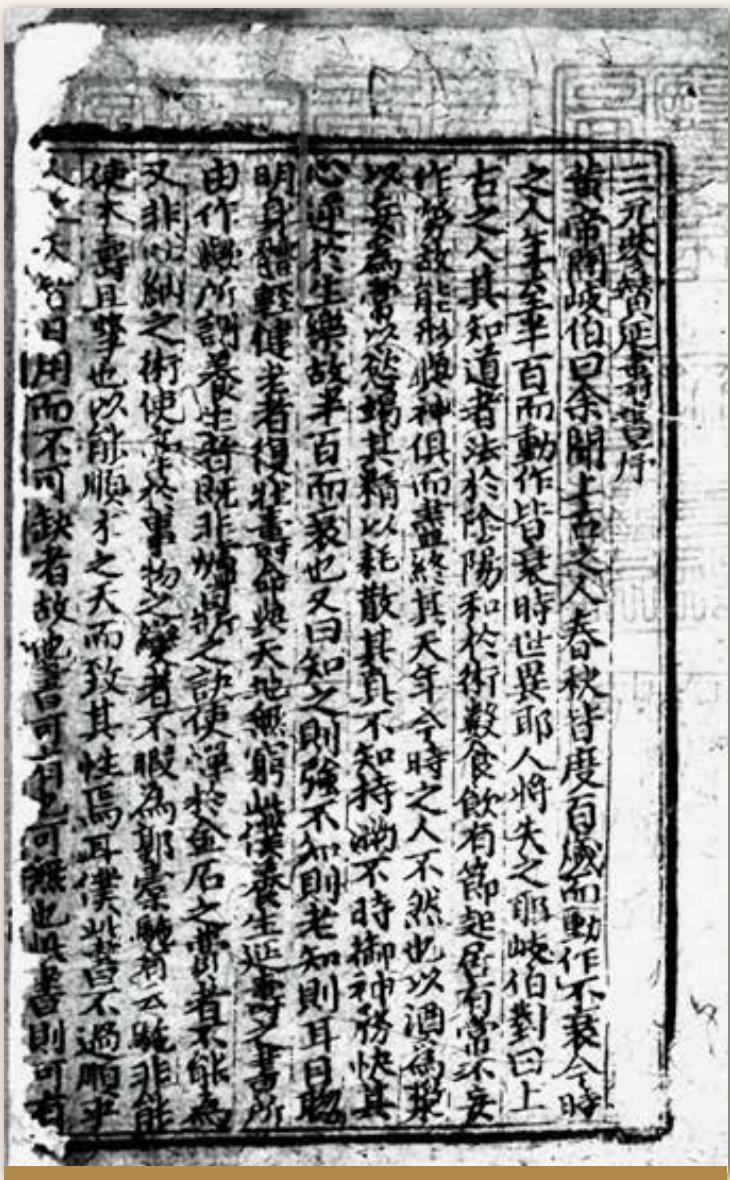 三元參贊延壽書序
黃帝問岐伯曰余聞上古之人春秋皆度百歲而動作不衰今時
之人年至半百而動作皆衰時世異耶人將失之耶岐伯對曰上
古之人其知道者法於陰陽和於術數食飲有節起居有常不妄
作勞故能形與神俱而盡終其天年今時之人不然也以酒為漿
以妄為常以慾竭其精以耗散其真不知持滿不時御神務快其
心逆於生樂故半百而衰也又曰知之則強不知則老知則耳目聰
明身體輕健老者復壯壽命與天地無窮此僕養生延壽之書所
由作歟所謂養生者既非爐鼎之訣使憚於金石之費者不能為
又非吐納之術使牽於事物之變者不暇為郭橐駝有云駝非能
使木壽且孳也以能順木之天而致其性焉耳僕此書不過順乎
人之天皆日用而不可缺者故他書可有也可無也此書則可有